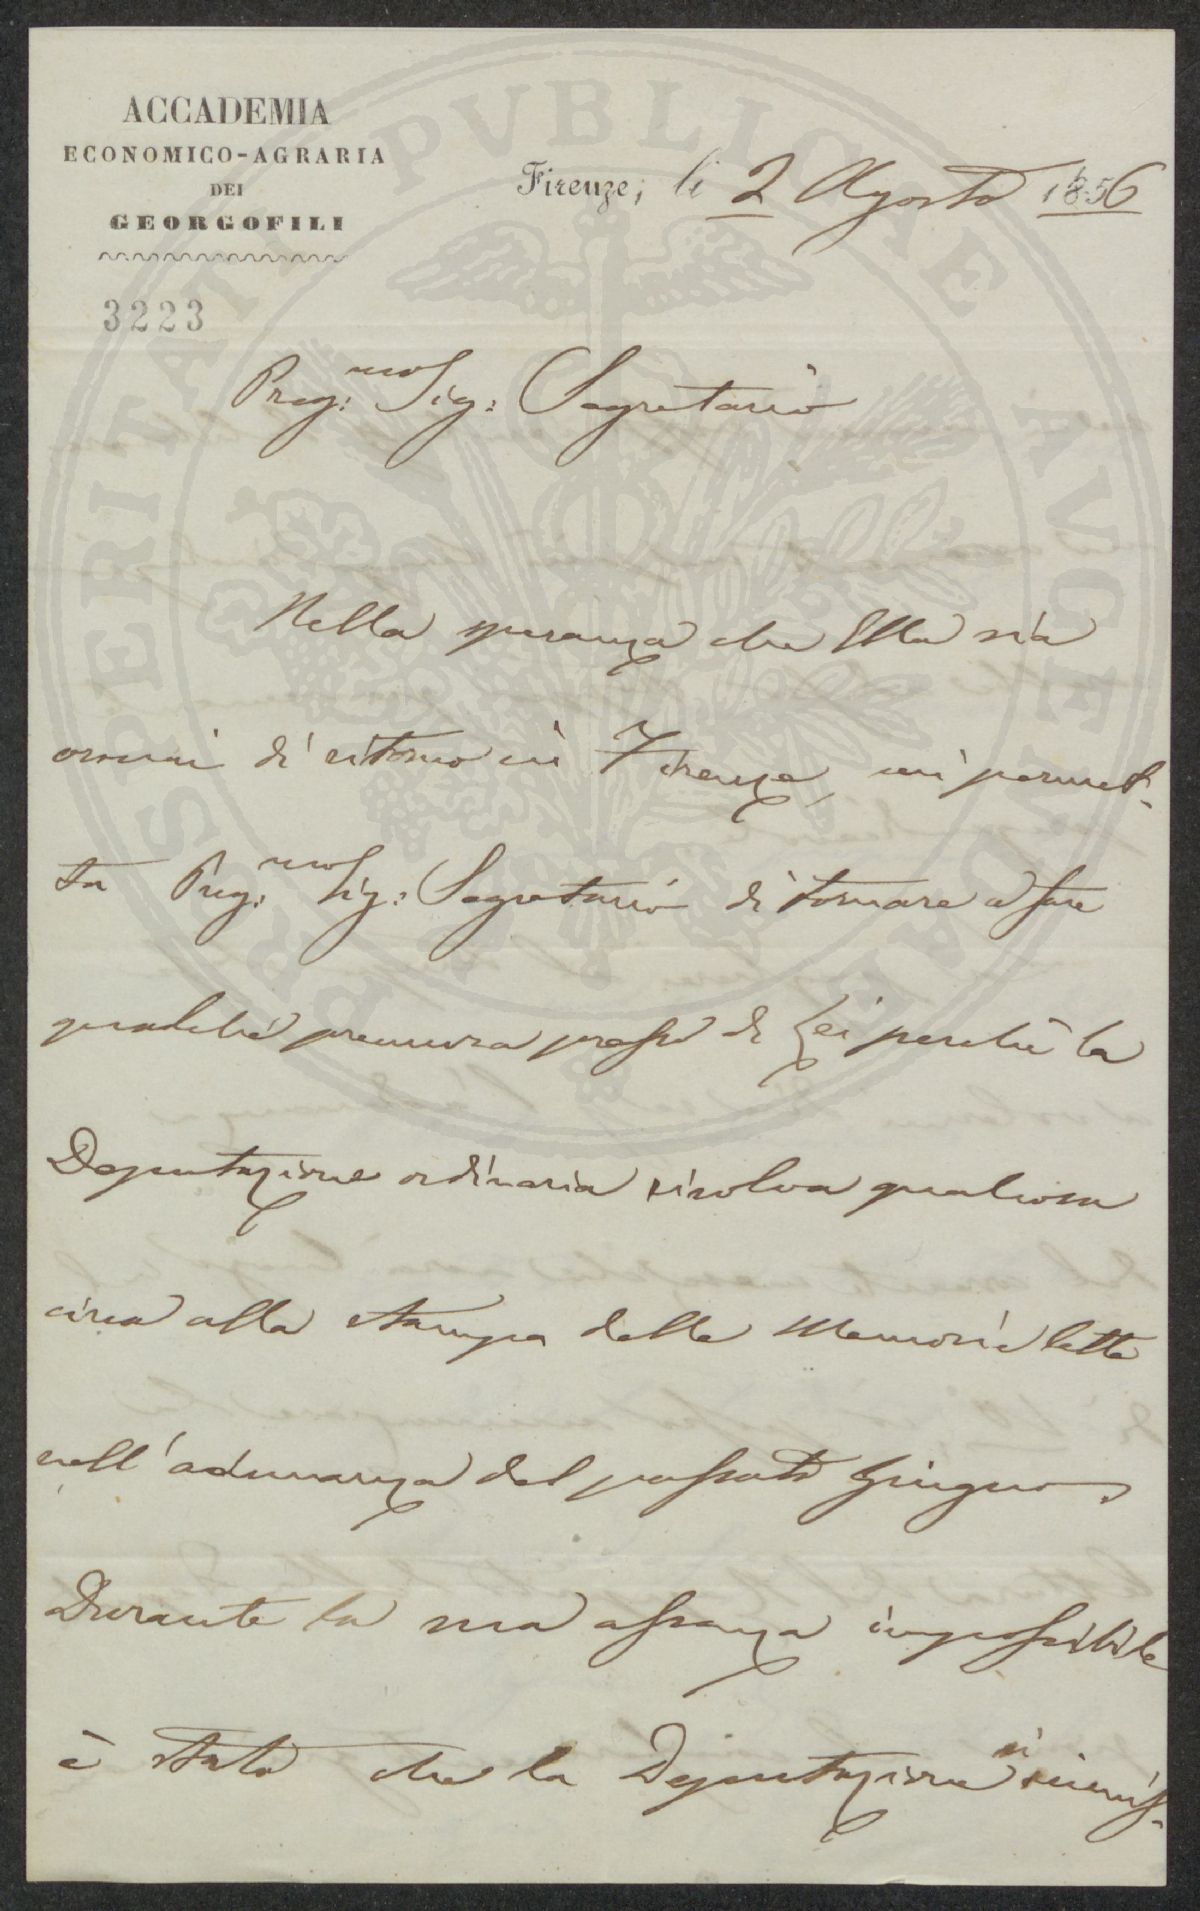 ACCADEMIA
ECONOMICO-AGRARIA
DEI
GEORGOFILI
Firenze, li 2 Agosto 1856
3223
Preg:mo Sig: Segretario
Nella speranza che Ella sia
ormai di ritorno in Firenze, mi permet-
ta Preg:mo Sig: Segretario di tornare a fare
qualche premura presso di Lei perchè la
Deputazione ordinaria risolva qualcosa
circa alla stampa delle Memorie lette
nell'adunanza del passato Giugno.
Durante la sua assenza impossibile
è stato che la Deputazione si riunis-
PROSPERITATI PVBLICAE AVGENDAE